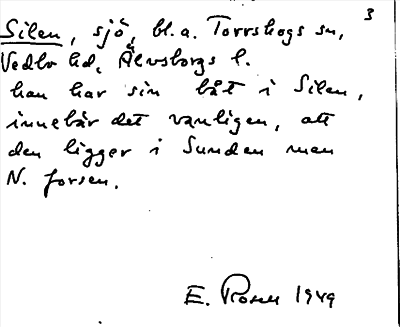 3
Silen, sjö, bl.a. Torrskogs sn,
Vedbo hd, Älvsborgs l.
han har sin båt i Silen,
innebär det vanligen, att
den ligger i Sunden
N. forsen.
E. Rosell 1949